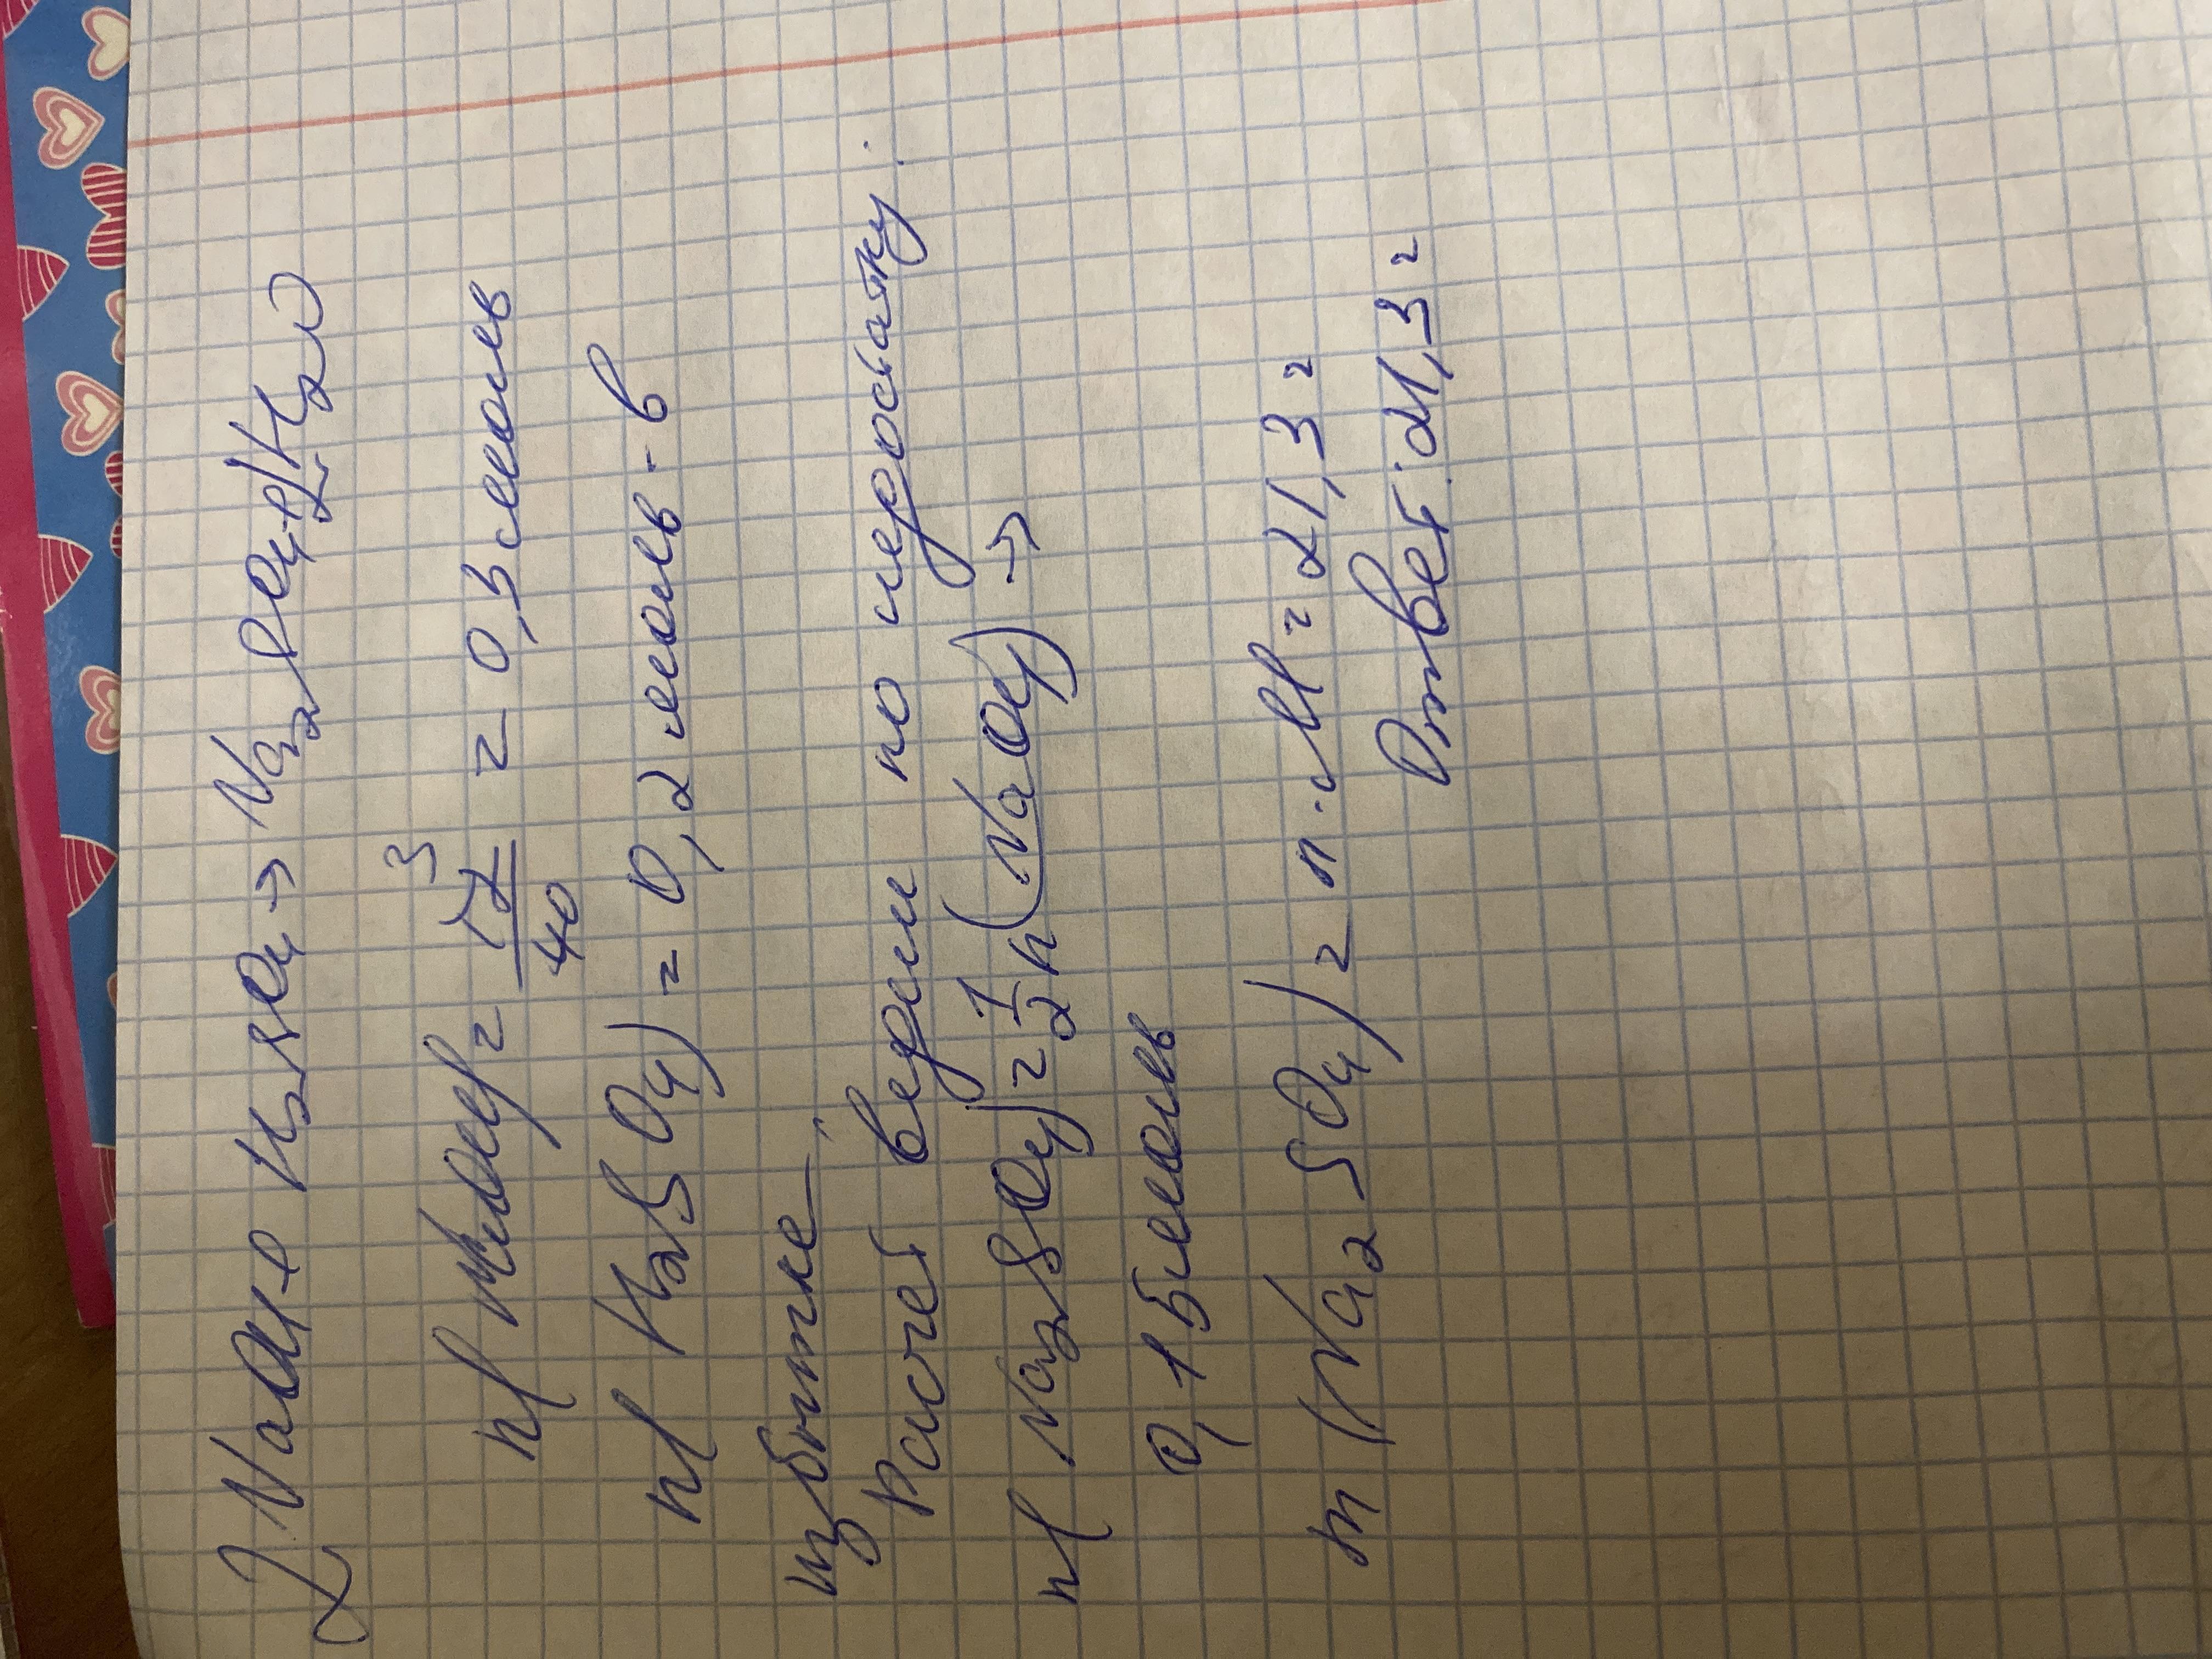 2NaOH + H₂SO₄ → Na₂SO₄ + 2H₂O
n(NaOH) = 12/40 3 = 0,3 моль
n(H₂SO₄) = 0,2 моль - в
избытке
Расчет ведем по недостатку:
n(Na₂SO₄) = 1/2 n(NaOH) →
0,15 моль
m(Na₂SO₄) = n·M = 21,3 г
Ответ: 21,3 г